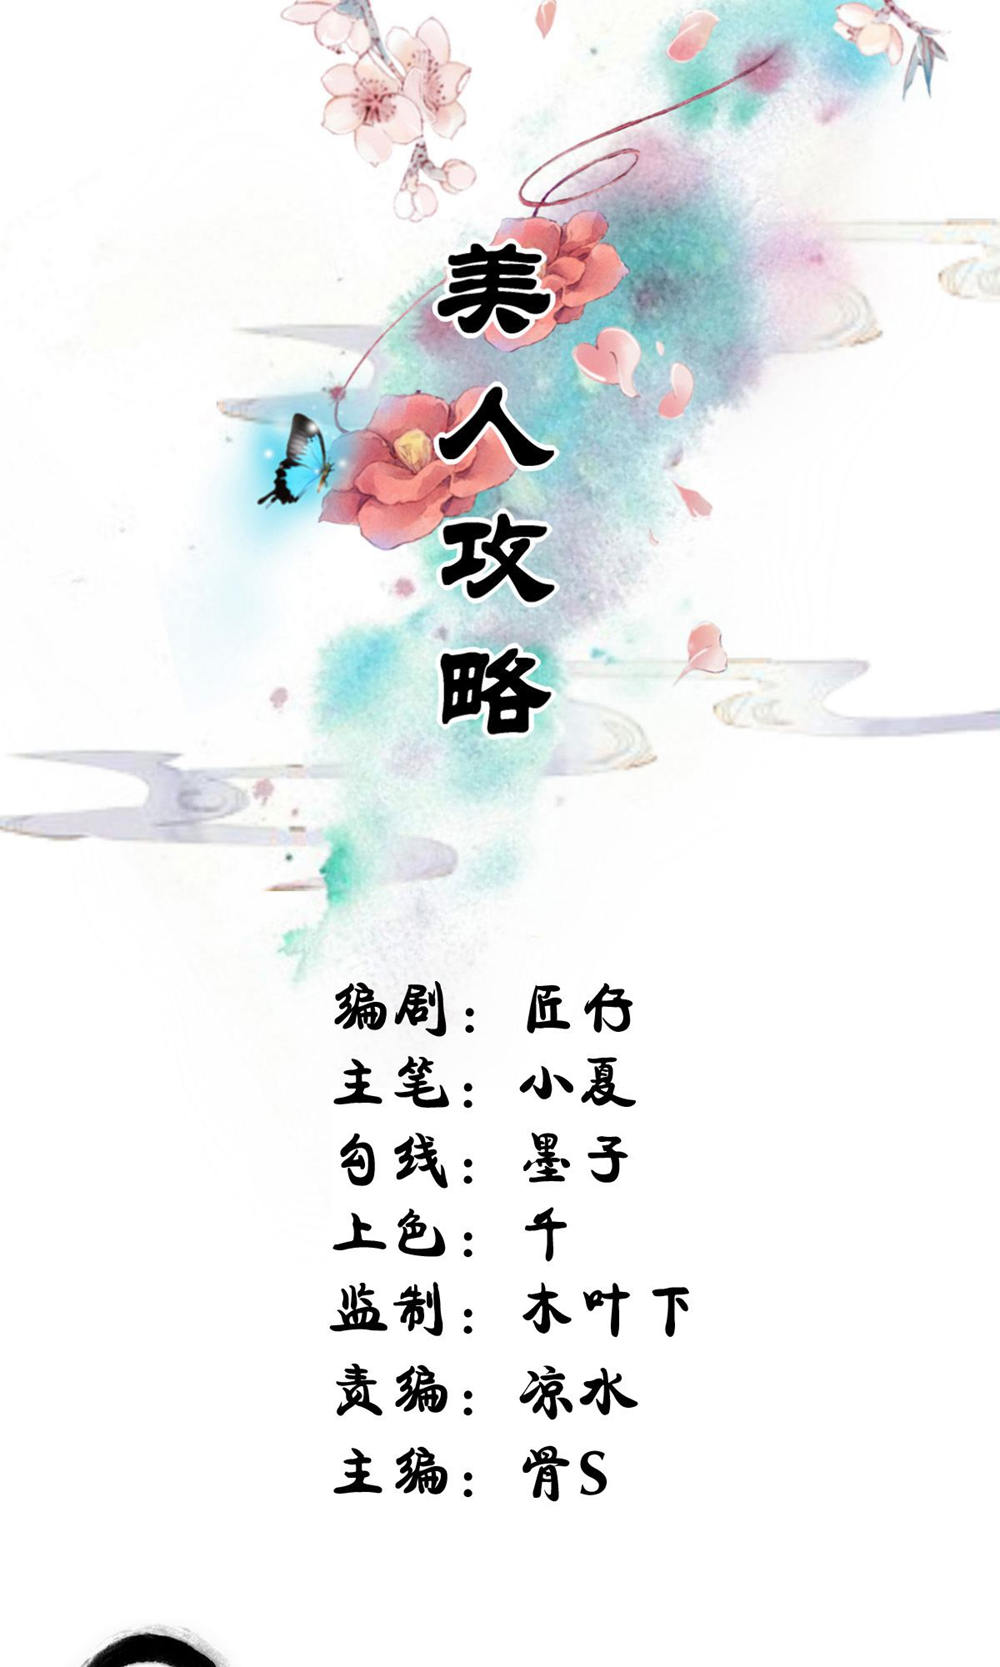 美人攻略
编剧：匠仔
主笔：小夏
勾线：墨子
上色：千
监制：木叶下
责编：凉水
主编：骨S